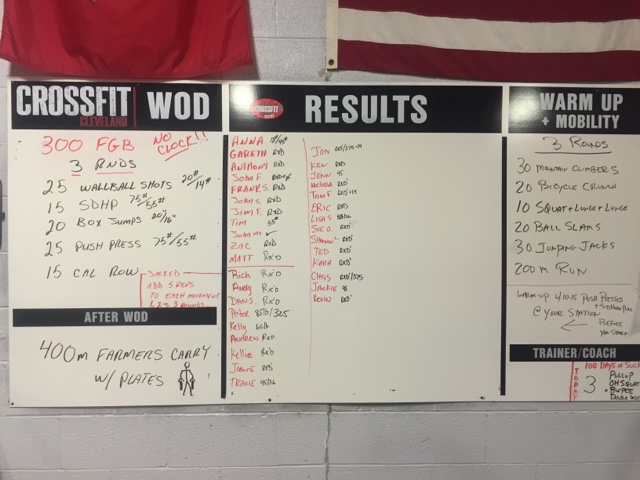 CROSSFIT
CLEVELAND
WOD
300 FGB NO CLOCK!!
3 RNDS
25 WALLBALL SHOTS 20#/14#
15 SDHP 75#/55#
20 BOX JUMPS 20/16"
25 PUSH PRESS 75#/55#
15 CAL ROW
ADD 5 REPS
TO EACH MOVEMENT
AFTER WOD
400M FARMERS CARRY
W/ PLATES
CROSSFIT
RESULTS
ANNA
GARETH RXD
ANTHONY RXD
JOHN F
FRANK S. RXD
JOHN S. RXD
JIM F. RXD
TIM 55#
ZAC RXD
MATT RXD
Rich RXD
Andy RXD
DAN S. RXD
Peter
Kelly
ANDREW RXD
Kellie RXD
TRACIE
JON
KEN RXD
JENN
ERIC RXD
LISA S
SUE D. RXD
TED RXD
KARA RXD
CHRIS RXD/375
JACKIE
KEVIN RXD
WARM UP
+ MOBILITY
3 ROUNDS
30 MOUNTAIN CLIMBERS
20 BICYCLE CRUNCH
10 SQUAT + LUNGE + LUNGE
20 BALL SLAMS
30 JUMPING JACKS
200 M RUN
WARM-UP PUSH PRESSES
@ YOUR STATION
BEFORE
YOU START
TRAINER/COACH
TODAY
100 DAYS OF
3
PULLUP
OH SQUAT
BURPEE